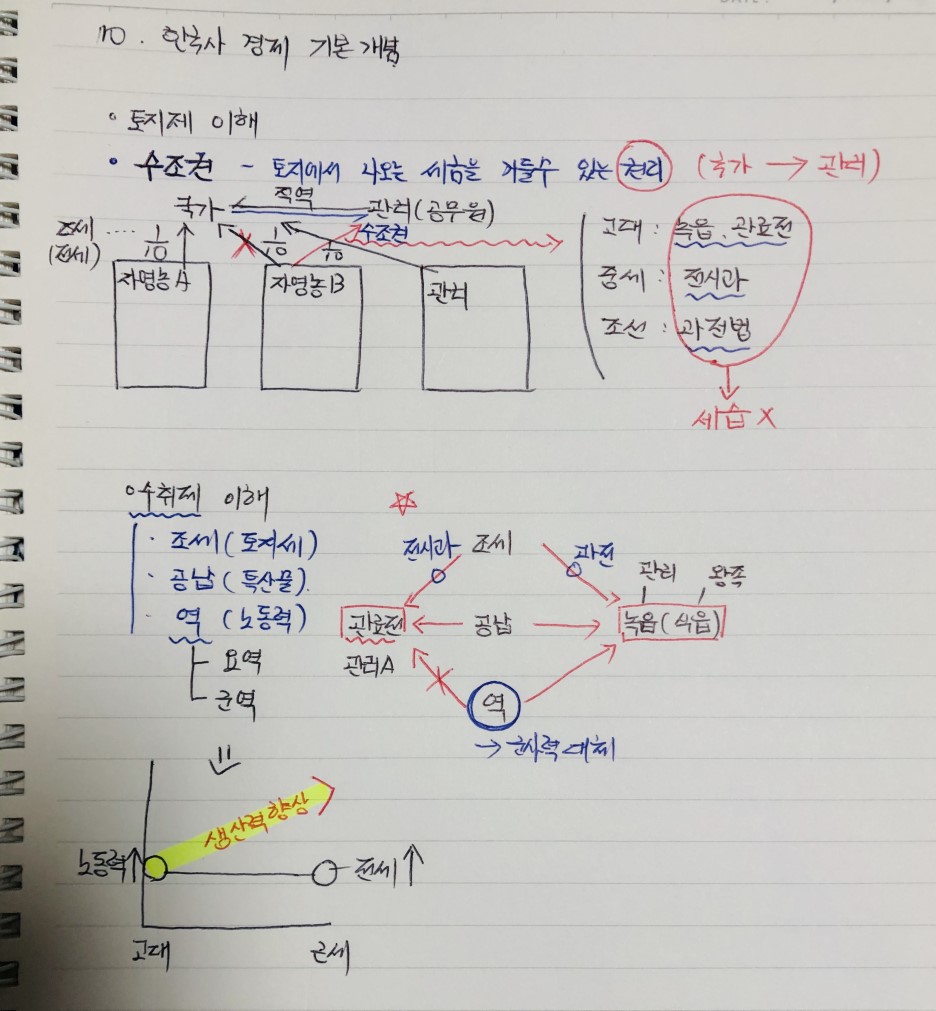 10. 한국사 경제 기본 개념
• 토지제 이해
• 수조권 - 토지에서 나오는 세금을 거둘수 있는 권리 (국가 → 관리)
국가 직역 관리(공무원)
수조권
조세 ····· 1/10
(전세)
1/10 1/10
자영농A 자영농B 관리
고대 : 녹읍, 관료전
중세 : 전시과
조선 : 과전법
세습 X
•수취제 이해 ☆
· 조세(토지세)
· 공납(특산물).
· 역 (노동력)
요역
군역
전시과 조세 과전
관리 왕족
관료전 ← 공납 → 녹읍(식읍)
관리A
역
→ 군사력 대체
생산력 향상
노동력↑ 전세↑
고대 근세